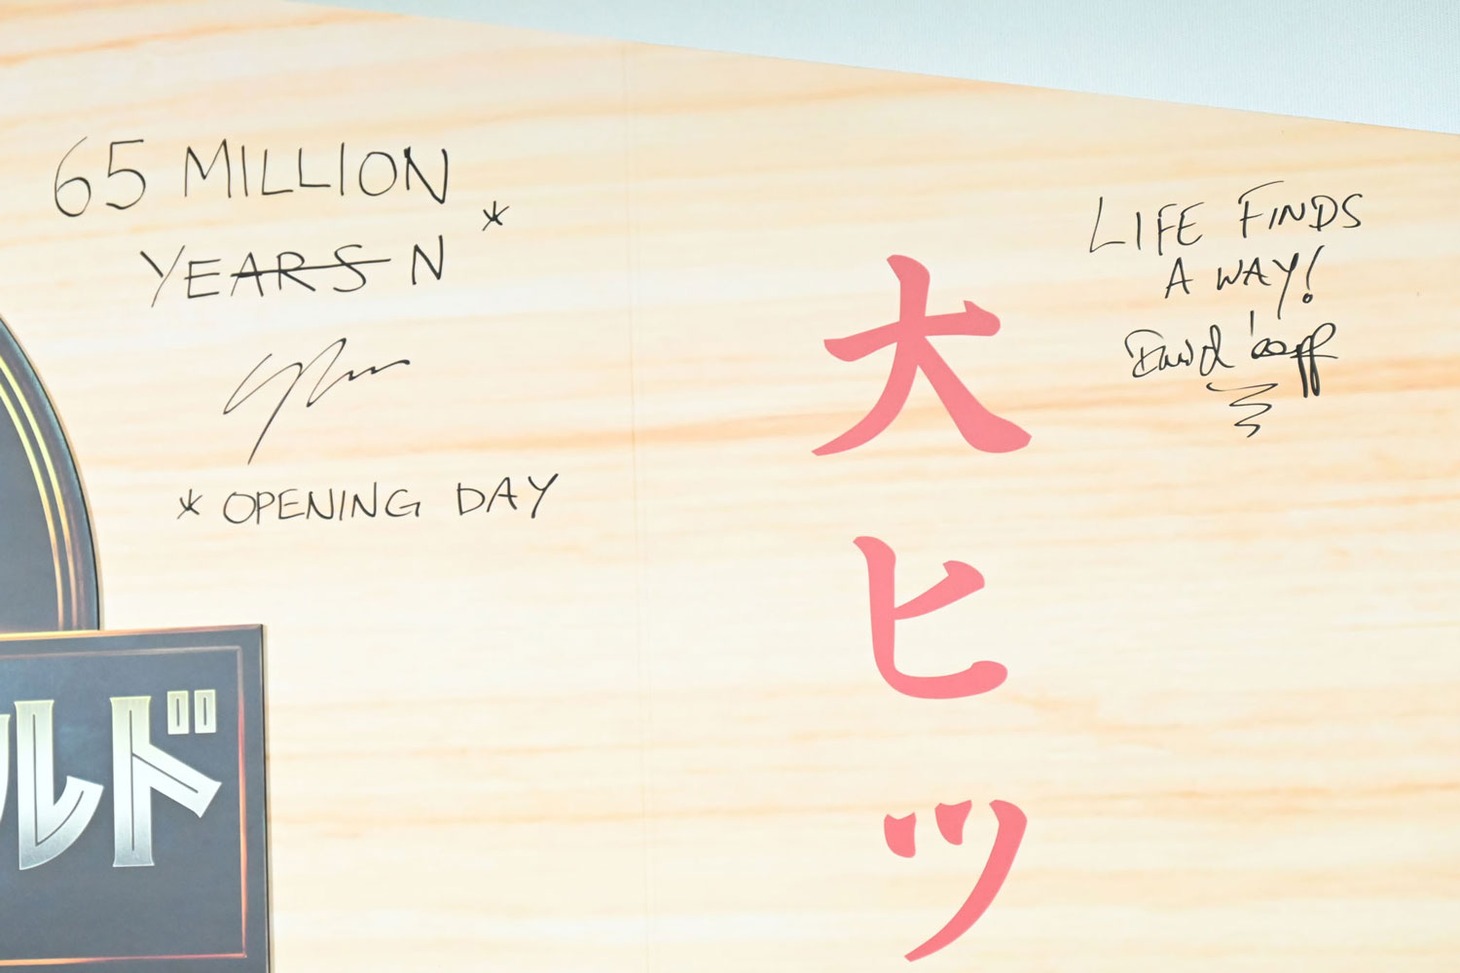 65 MILLION
YEARS N *
* OPENING DAY
LIFE FINDS
A WAY!
David
大ヒッ
ルド